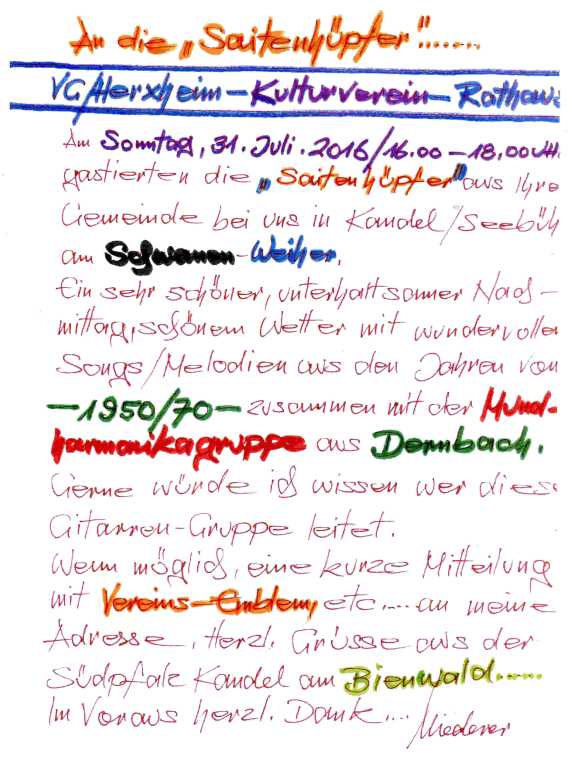 An die „Saitenhüpfer"......
VG/Herxheim-Kulturverein-Rathaus
Am Sonntag, 31. Juli. 2016/16.00-18.00 Uh
gastierten die „Saitenhüpfer" aus Ihre
Gemeinde bei uns in Kandel/Seebüh
am Schwanen-Weiher.
Ein sehr schöner, unterhaltsamer Nach-
mittag, schönem Wetter mit wundervolle
Songs/Melodien aus den Jahren von
-1950/70- zusammen mit der Mund-
harmonikagruppe aus Dernbach.
Gerne würde ich wissen wer diese
Gitarren-Gruppe leitet.
Wenn möglich, eine kurze Mitteilung
mit Vereins-Emblem, etc.... an meine
Adresse. Herzl. Grüsse aus der
Südpfalz Kandel am Bienwald.....
Im Voraus herzl. Dank... Miederer